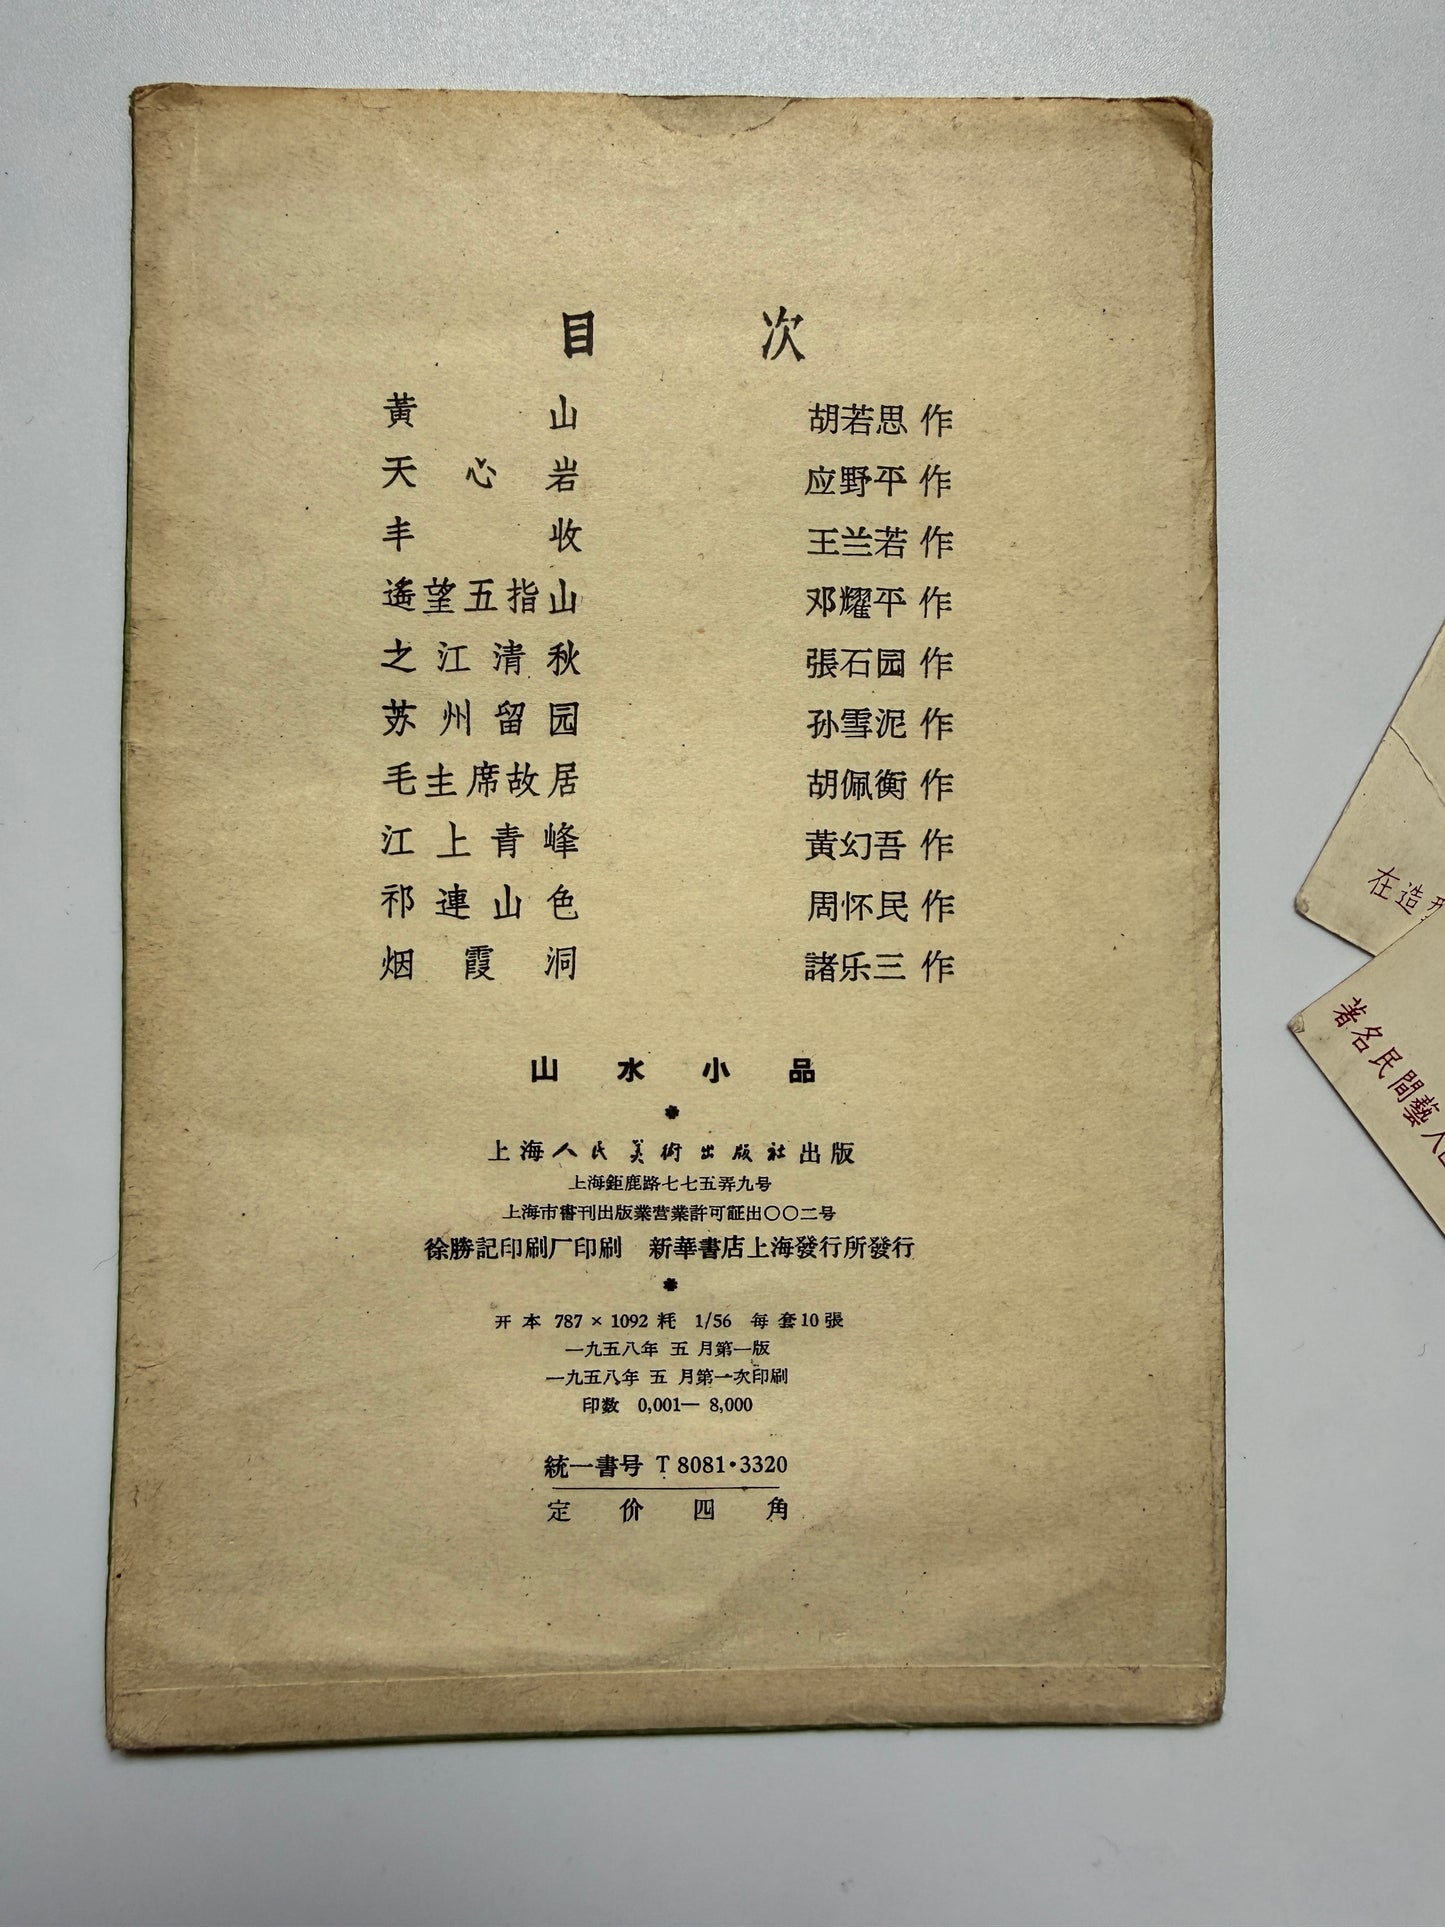 目 次
黃山 胡若思 作
天心岩 应野平 作
丰收 王兰若 作
遙望五指山 邓耀平 作
之江清秋 張石园 作
苏州留园 孙雪泥 作
毛主席故居 胡佩衡 作
江上青峰 黃幻吾 作
祁連山色 周怀民 作
烟霞洞 諸乐三 作
山水小品
上海人民美術出版社出版
上海鉅鹿路七七五弄九号
上海市書刊出版業营業許可証出〇〇二号
徐勝記印刷厂印刷 新華書店上海發行所發行
开本 787 × 1092 耗 1/56 每套10張
一九五八年 五 月第一版
一九五八年 五 月第一次印刷
印数 0,001— 8,000
統一書号 T 8081·3320
定价四角
在造
著名民間藝人